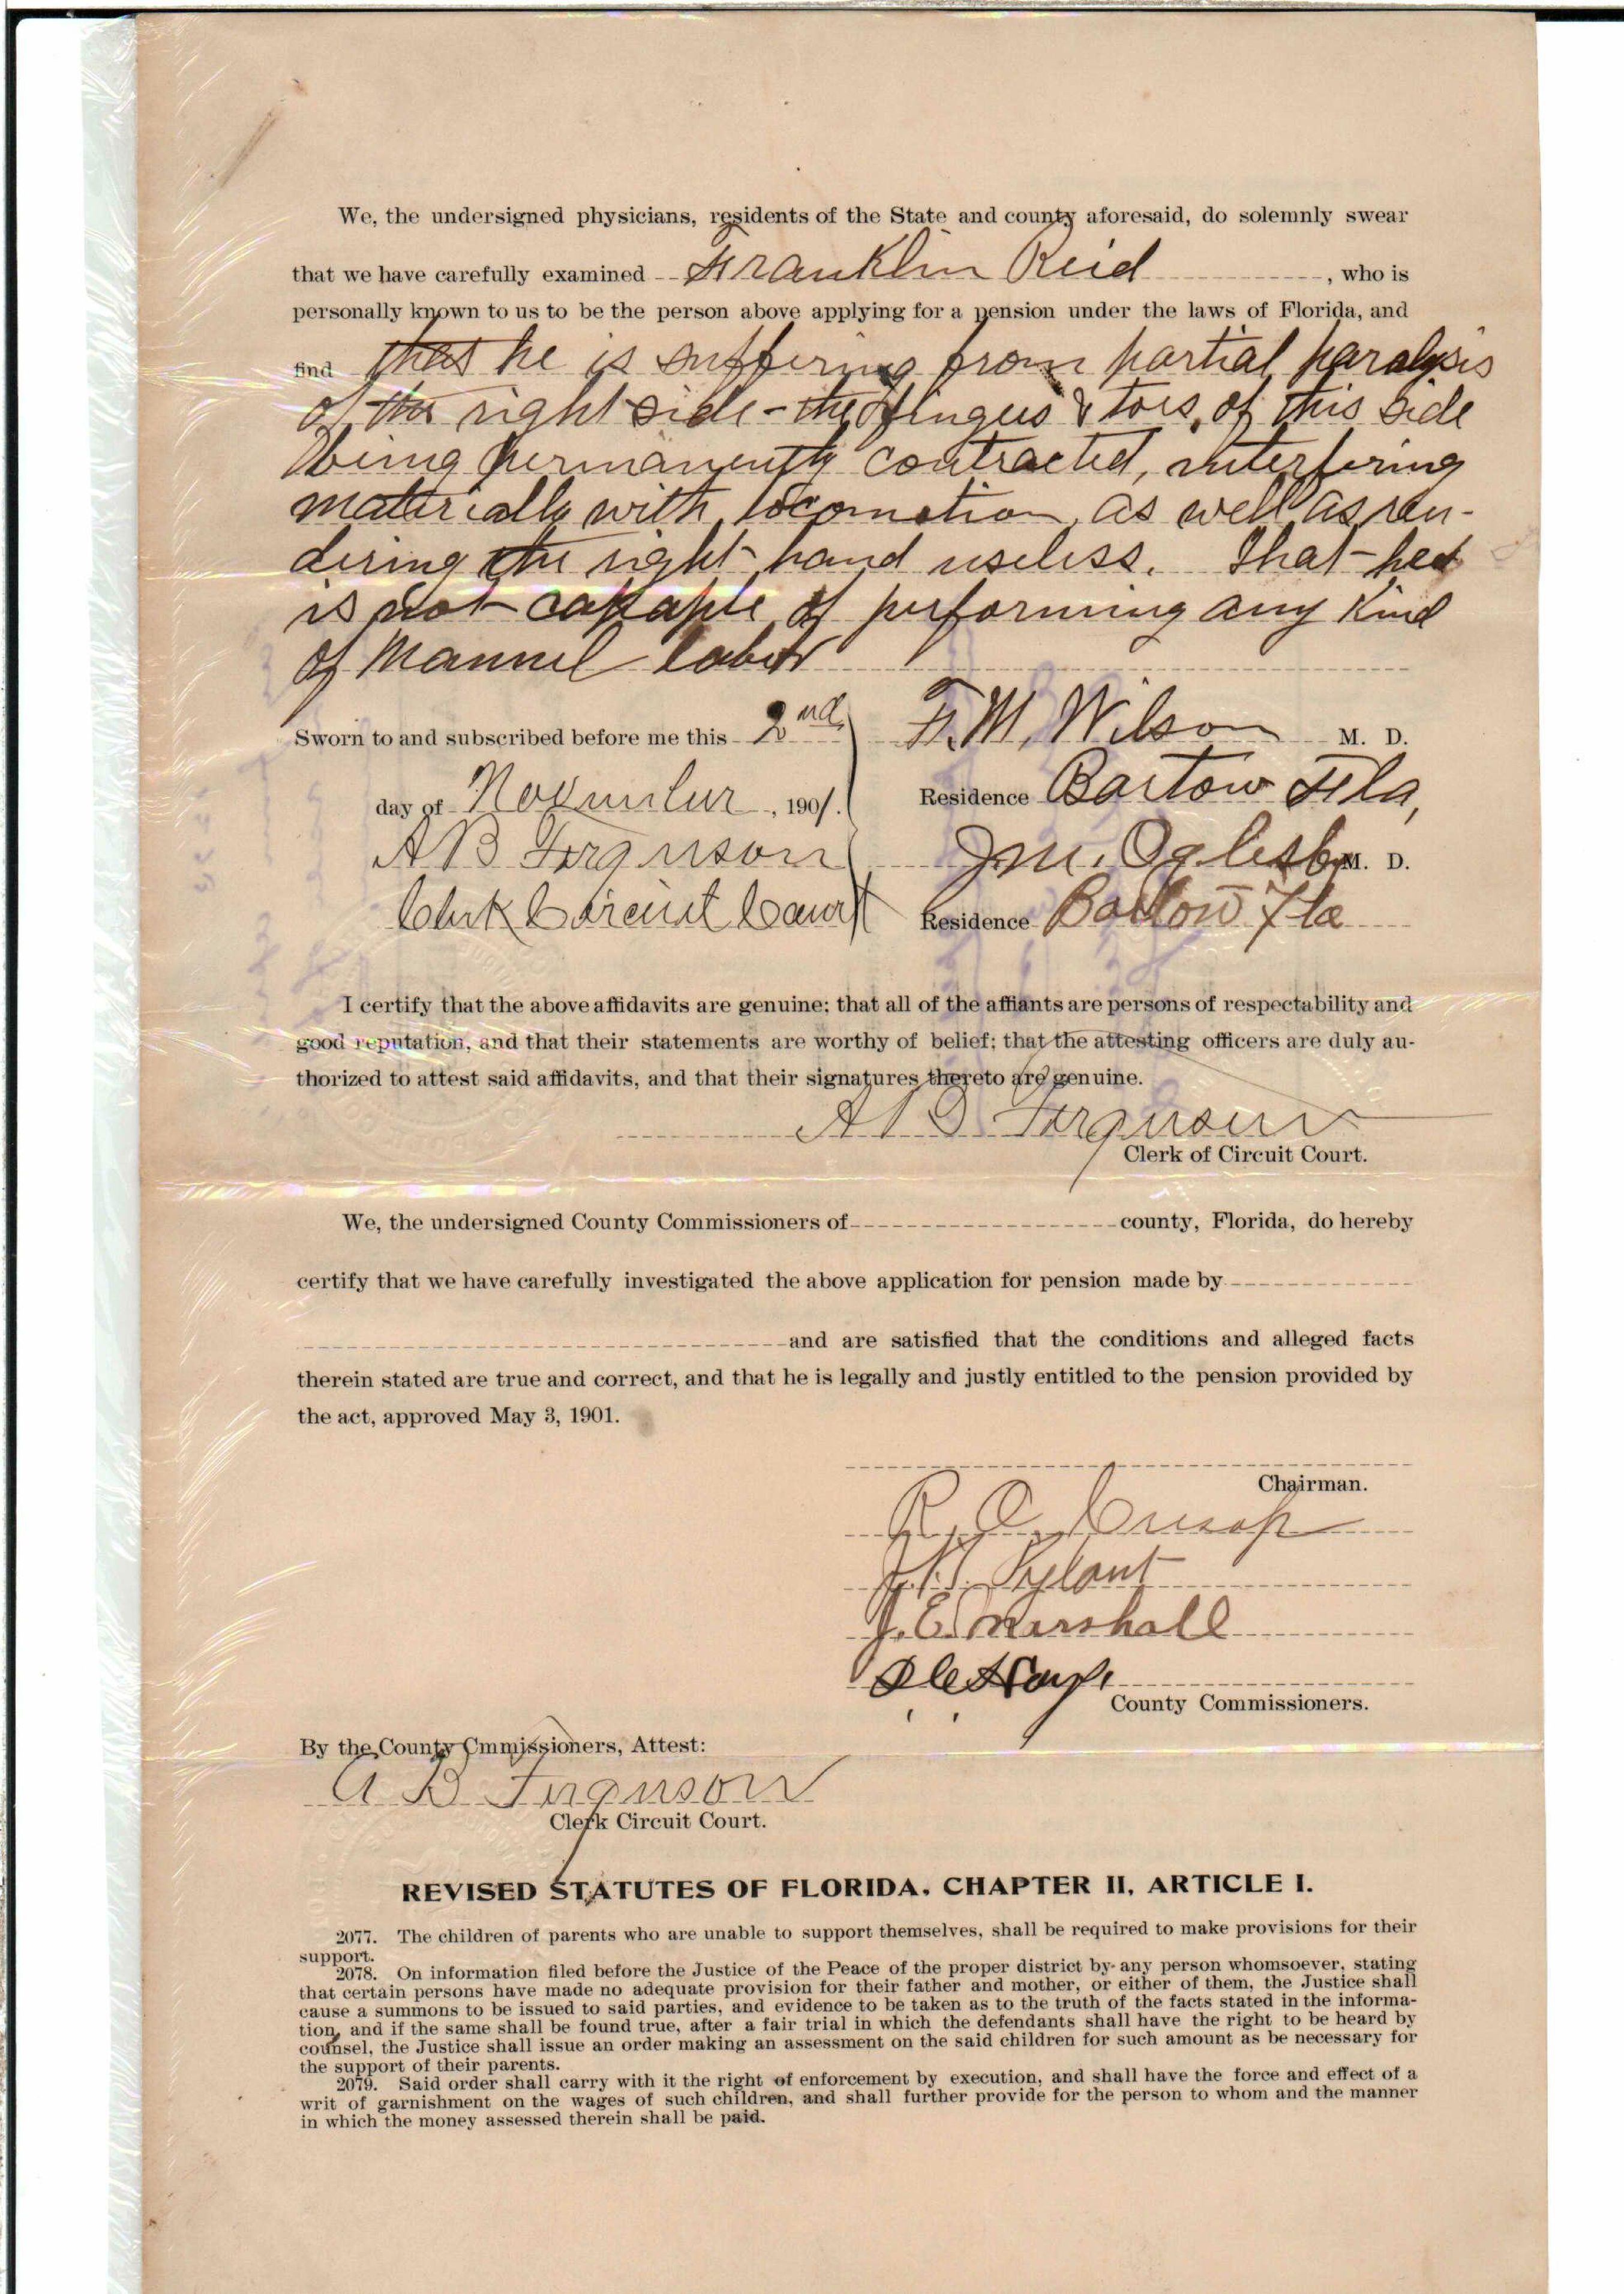 We, the undersigned physicians, residents of the State and county aforesaid, do solemnly swear
that we have carefully examined Franklin Reid, who is
personally known to us to be the person above applying for a pension under the laws of Florida, and
find that he is suffering from partial paralysis
of the right side - the fingers & toes, of this side
being permanently contracted, interfering
materially with locomotion, as well as ren-
dering the right hand useless. That he
is not capable of performing any Kind
of Manuel labor
Sworn to and subscribed before me this 2nd F. M. Wilson M. D.
day of November, 1901. Residence Bartow Fla,
A B Ferguson J M. Oglesby M. D.
Clerk Circuit Court Residence Bartow Fla
I certify that the above affidavits are genuine; that all of the affiants are persons of respectability and
good reputation, and that their statements are worthy of belief; that the attesting officers are duly au-
thorized to attest said affidavits, and that their signatures thereto are genuine.
A B Ferguson
Clerk of Circuit Court.
We, the undersigned County Commissioners of county, Florida, do hereby
certify that we have carefully investigated the above application for pension made by
and are satisfied that the conditions and alleged facts
therein stated are true and correct, and that he is legally and justly entitled to the pension provided by
the act, approved May 3, 1901.
Chairman.
R. O. Cresap
Pylant
J. E. Marshall
County Commissioners.
By the County Cmmissioners, Attest:
A B Ferguson
Clerk Circuit Court.
REVISED STATUTES OF FLORIDA, CHAPTER II, ARTICLE I.
2077. The children of parents who are unable to support themselves, shall be required to make provisions for their
support.
2078. On information filed before the Justice of the Peace of the proper district by any person whomsoever, stating
that certain persons have made no adequate provision for their father and mother, or either of them, the Justice shall
cause a summons to be issued to said parties, and evidence to be taken as to the truth of the facts stated in the informa-
tion, and if the same shall be found true, after a fair trial in which the defendants shall have the right to be heard by
counsel, the Justice shall issue an order making an assessment on the said children for such amount as be necessary for
the support of their parents.
2079. Said order shall carry with it the right of enforcement by execution, and shall have the force and effect of a
writ of garnishment on the wages of such children, and shall further provide for the person to whom and the manner
in which the money assessed therein shall be paid.